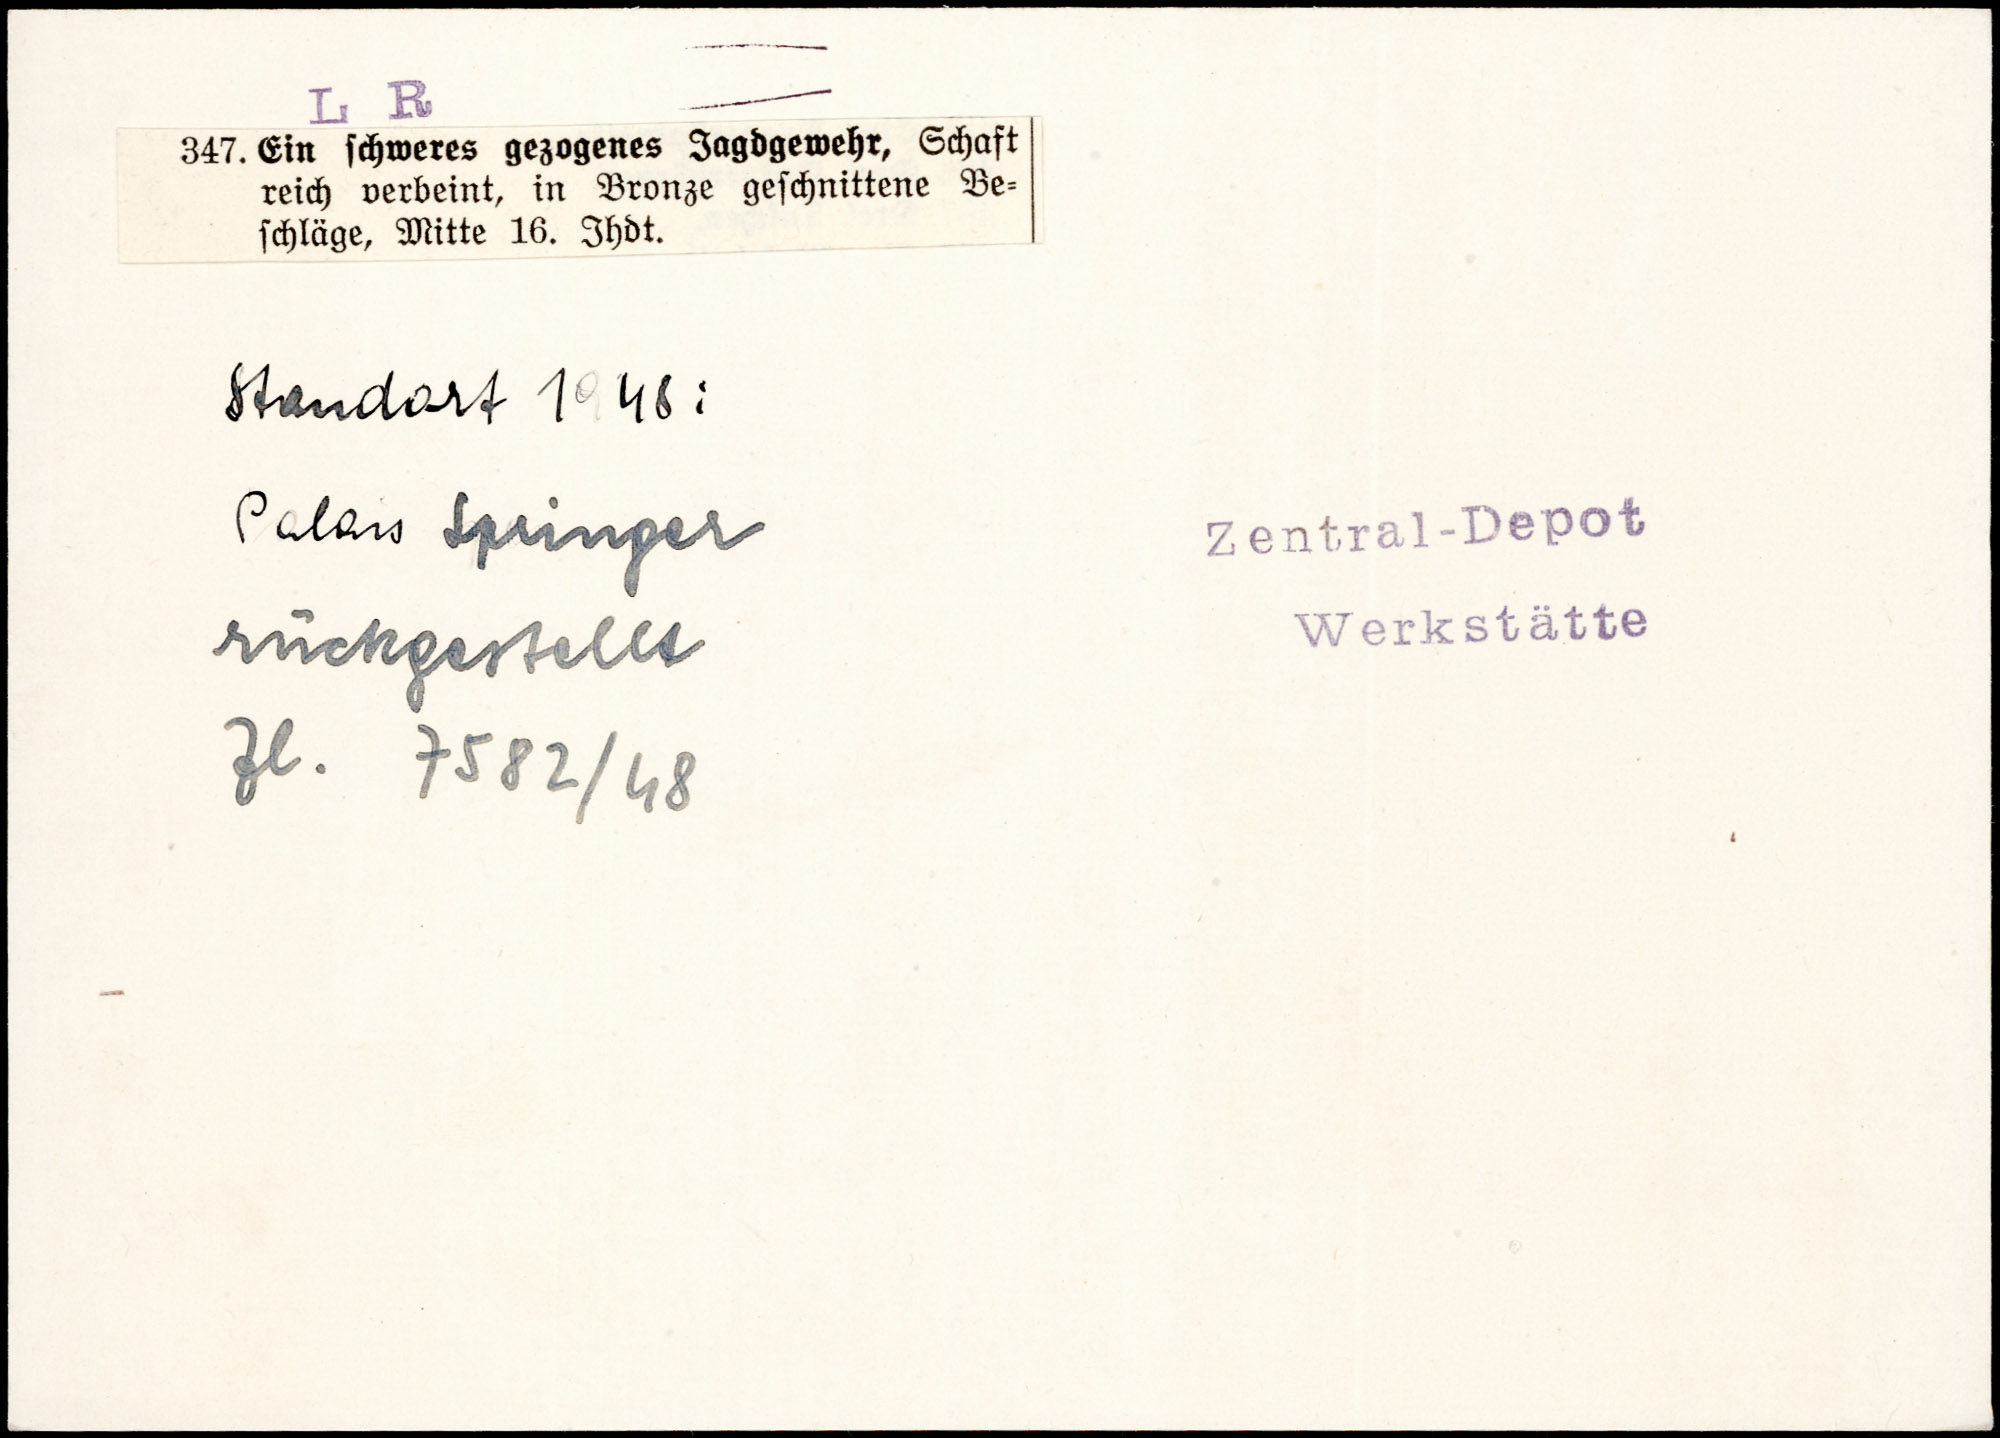 L R
347. Ein schweres gezogenes Jagdgewehr, Schaft
reich verbeint, in Bronze geschnittene Be-
schläge, Mitte 16. Jhdt.
Standort 1948:
Palais Springer
Zentral-Depot
rückgestellt
Werkstätte
Zl. 7582/48